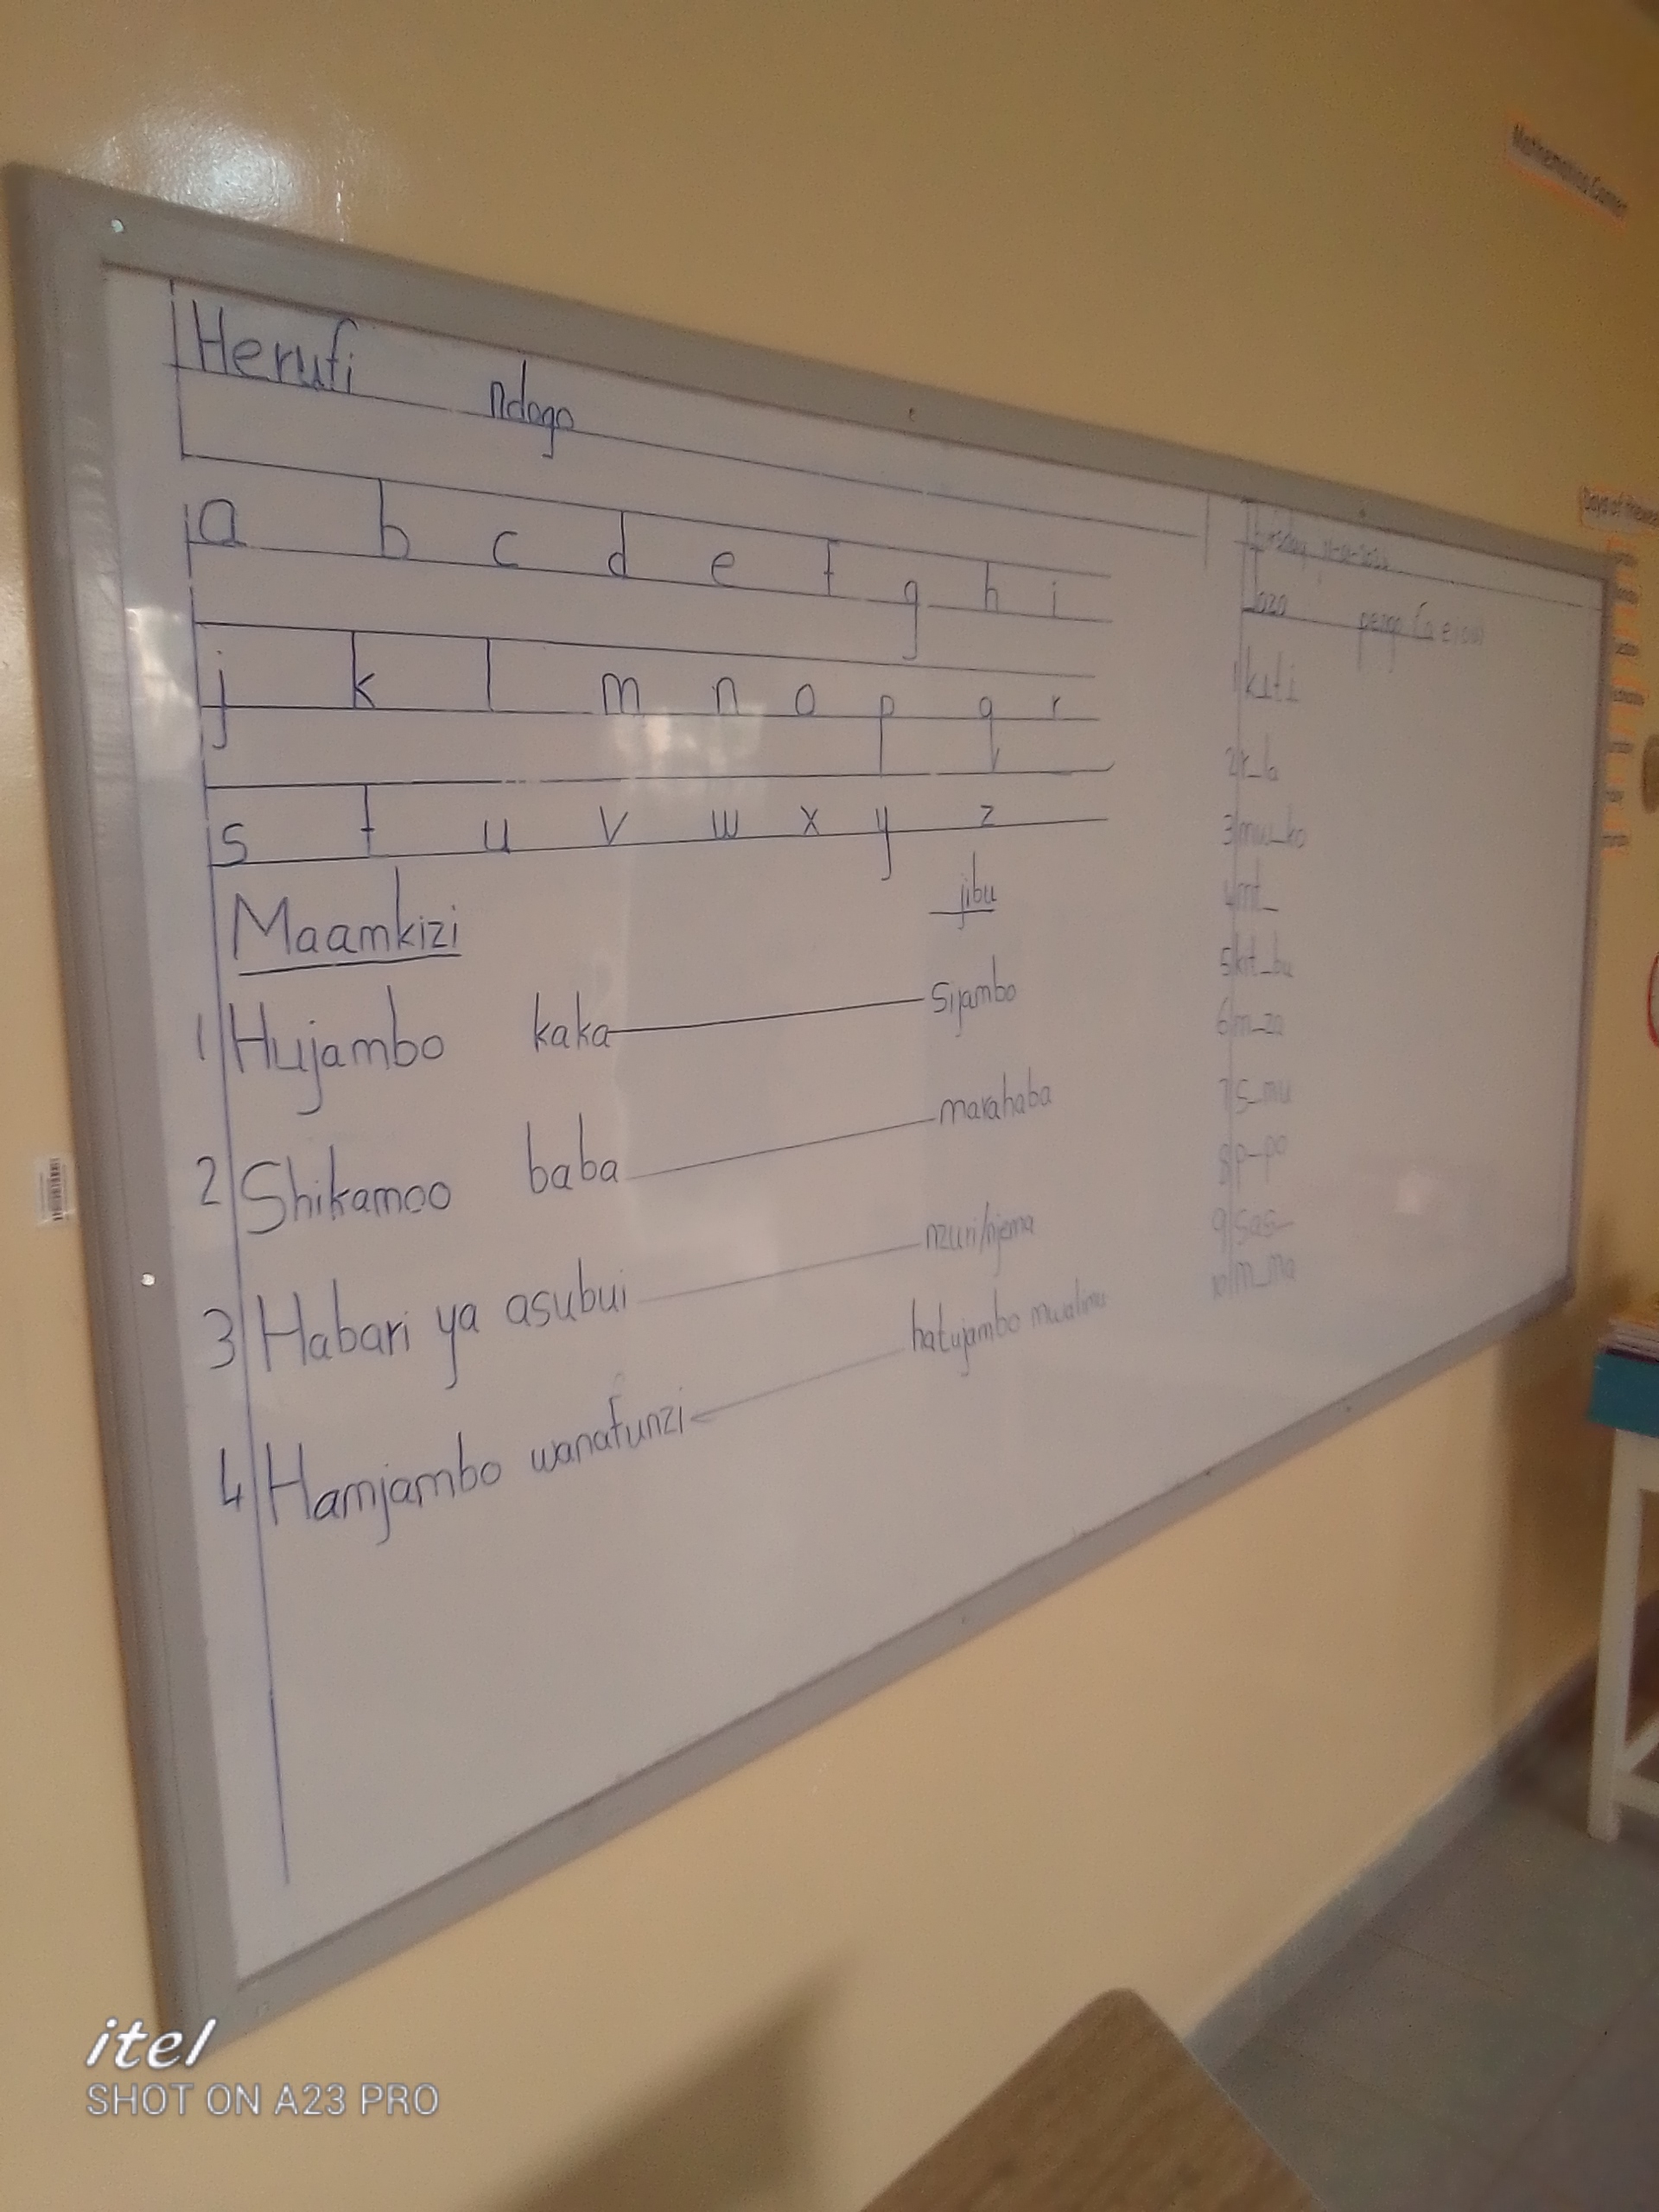 Herufi ndogo
a b c d e f g h i
j k l m n o p q r
s t u v w x y z
Maamkizi jibu
1 Hujambo kaka sijambo
2 Shikamoo baba marahaba
3 Habari ya asubui nzuri/njema
4 Hamjambo wanafunzi hatujambo mwalimu
Jaza pengo (a e i o u)
1 kiti
2 r_b
3 mu_ko
4 mt_
5 kit_bu
6 m_za
7 s_mu
8 p_po
9 sas_
10 m_ma
Mathematics Corner
Days of the week
itel
SHOT ON A23 PRO